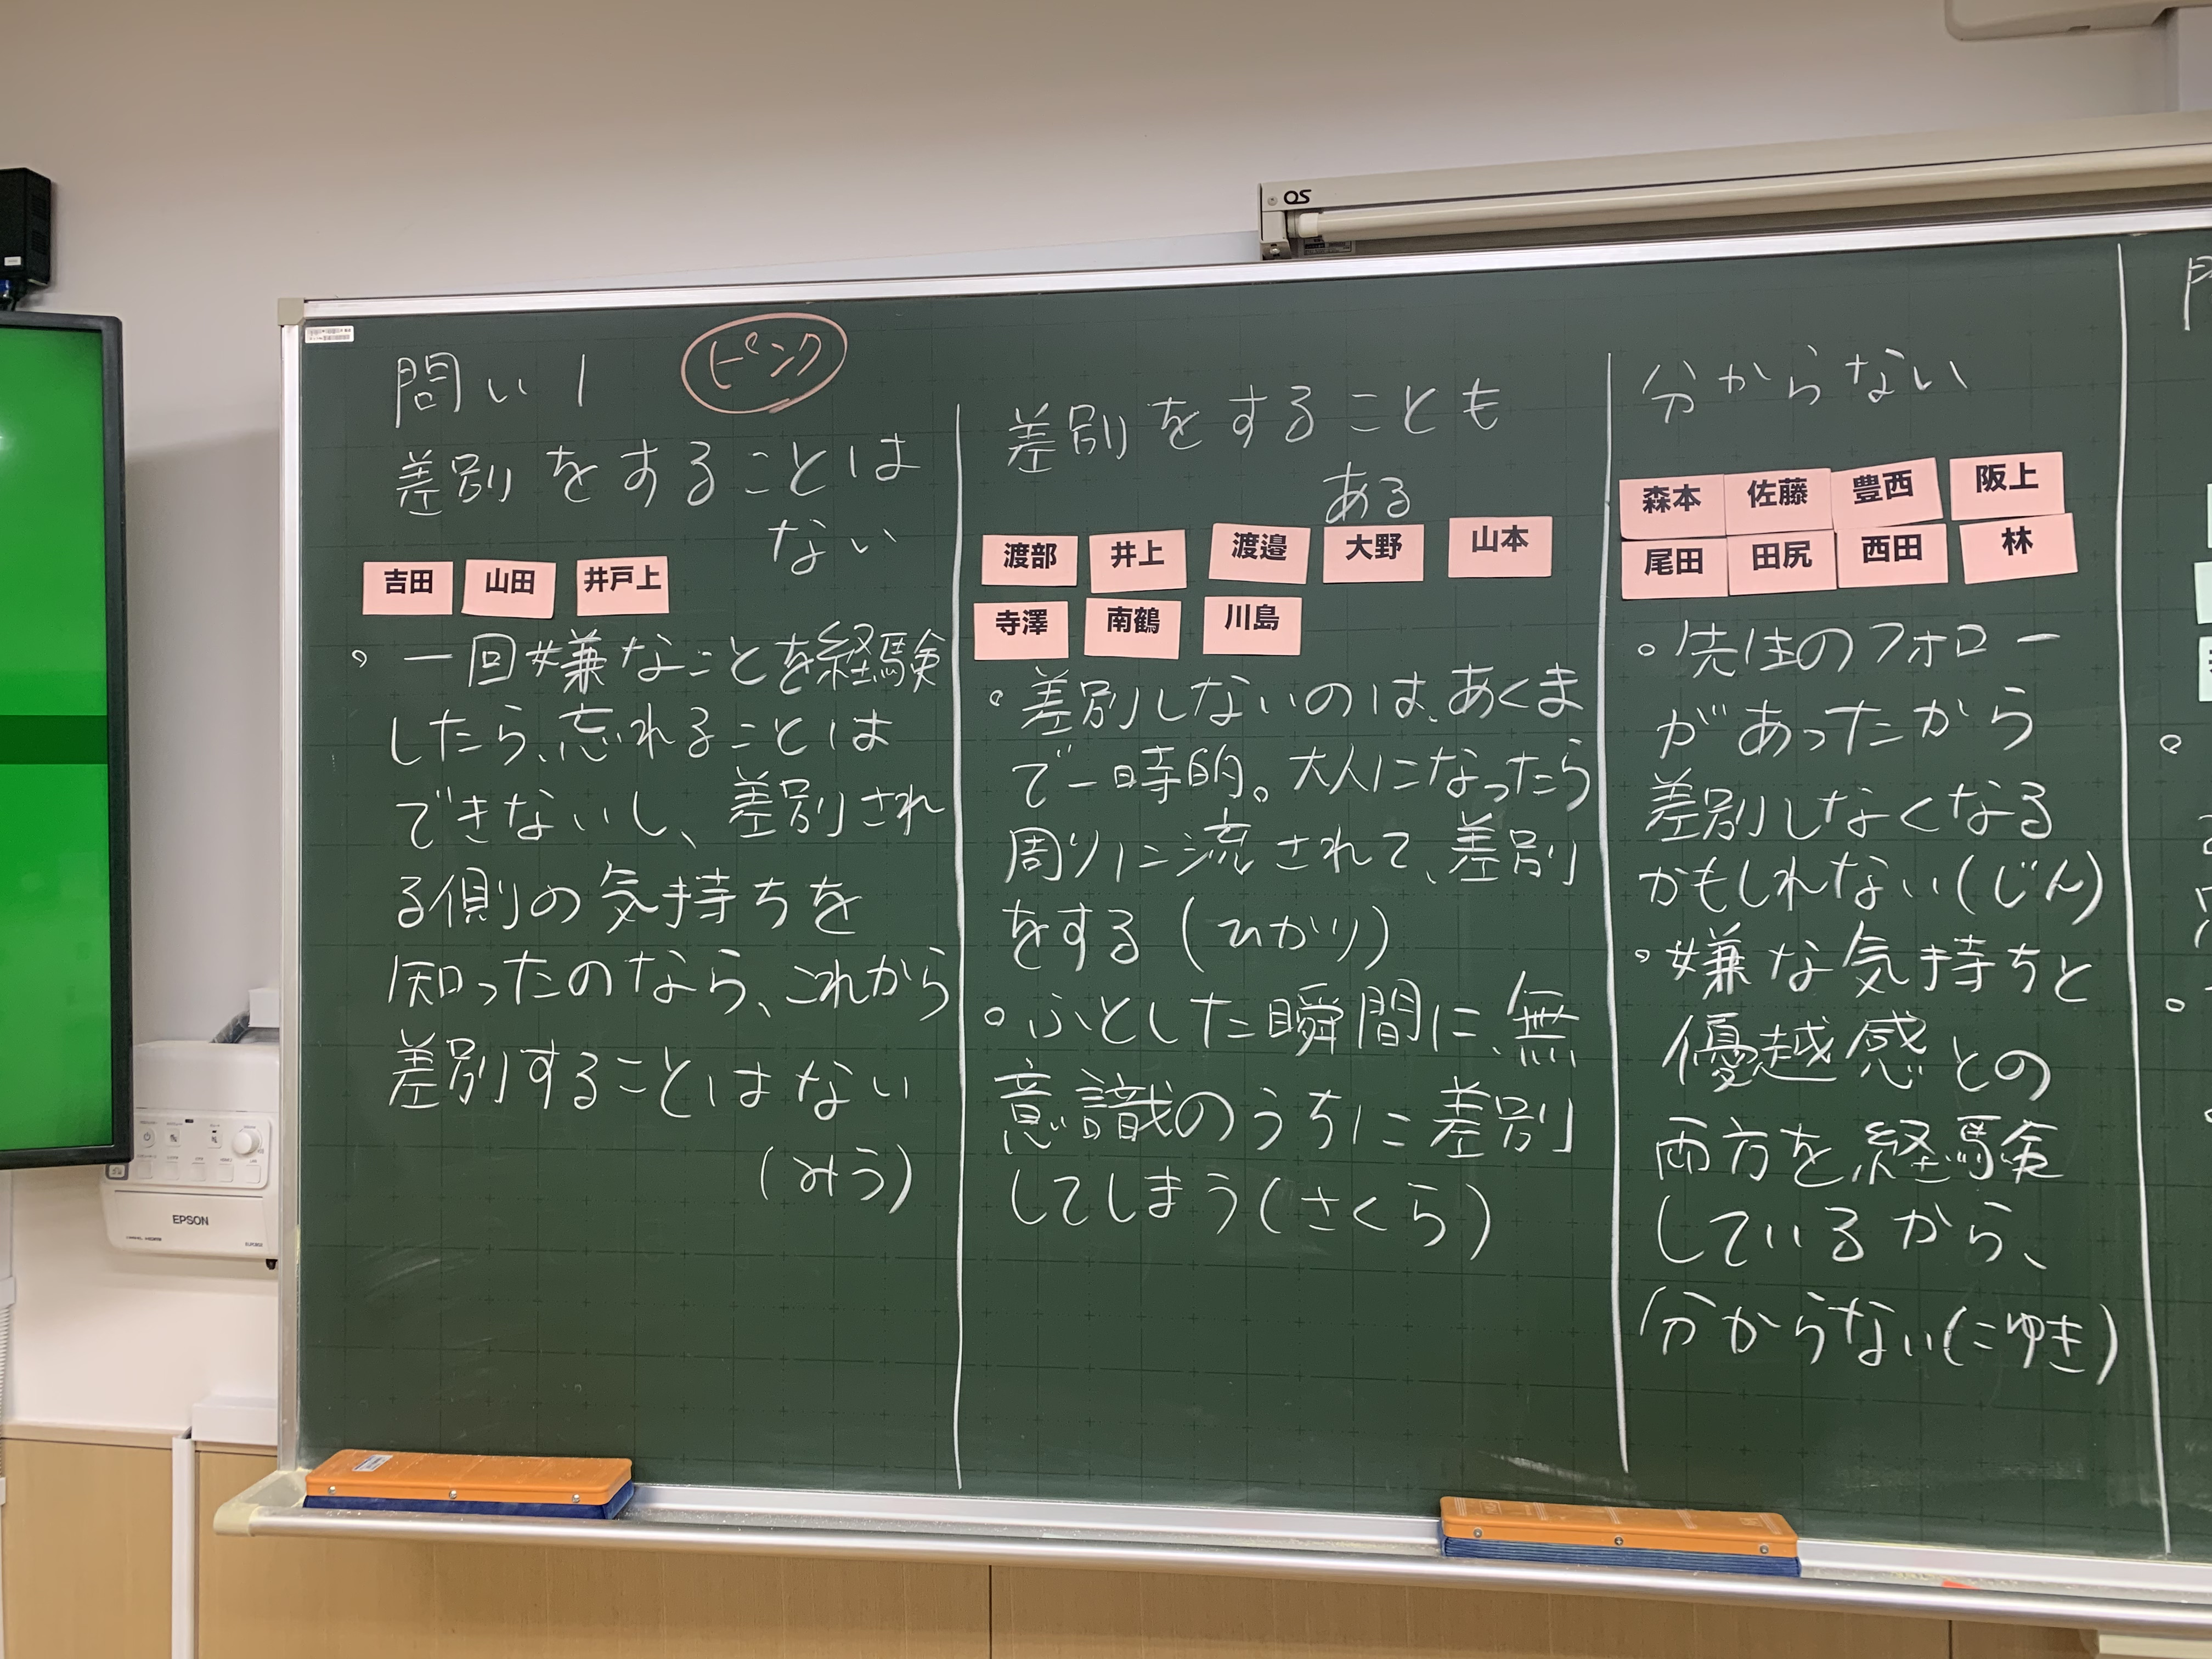 QS
問い1
ピンク
差別をすることは
ない
吉田 山田 井戸上
。一回嫌なことを経験
したら、忘れることは
できないし、差別され
る側の気持ちを
知ったのなら、これから
差別することはない
(みう)
差別をすることも
ある
渡部 井上 渡邉 大野 山本
寺澤 南鶴 川島
。差別しないのは、あくま
で一時的。大人になったら
周りに流されて、差別
をする(ひかり)
。ふとした瞬間に、無
意識のうちに差別
してしまう(さくら)
分からない
森本 佐藤 豊西 阪上
尾田 田尻 西田 林
。先生のフォロー
があったから
差別しなくなる
かもしれない(じん)
。嫌な気持ちと
優越感との
両方を経験
しているから、
分からない(こゆき)
EPSON